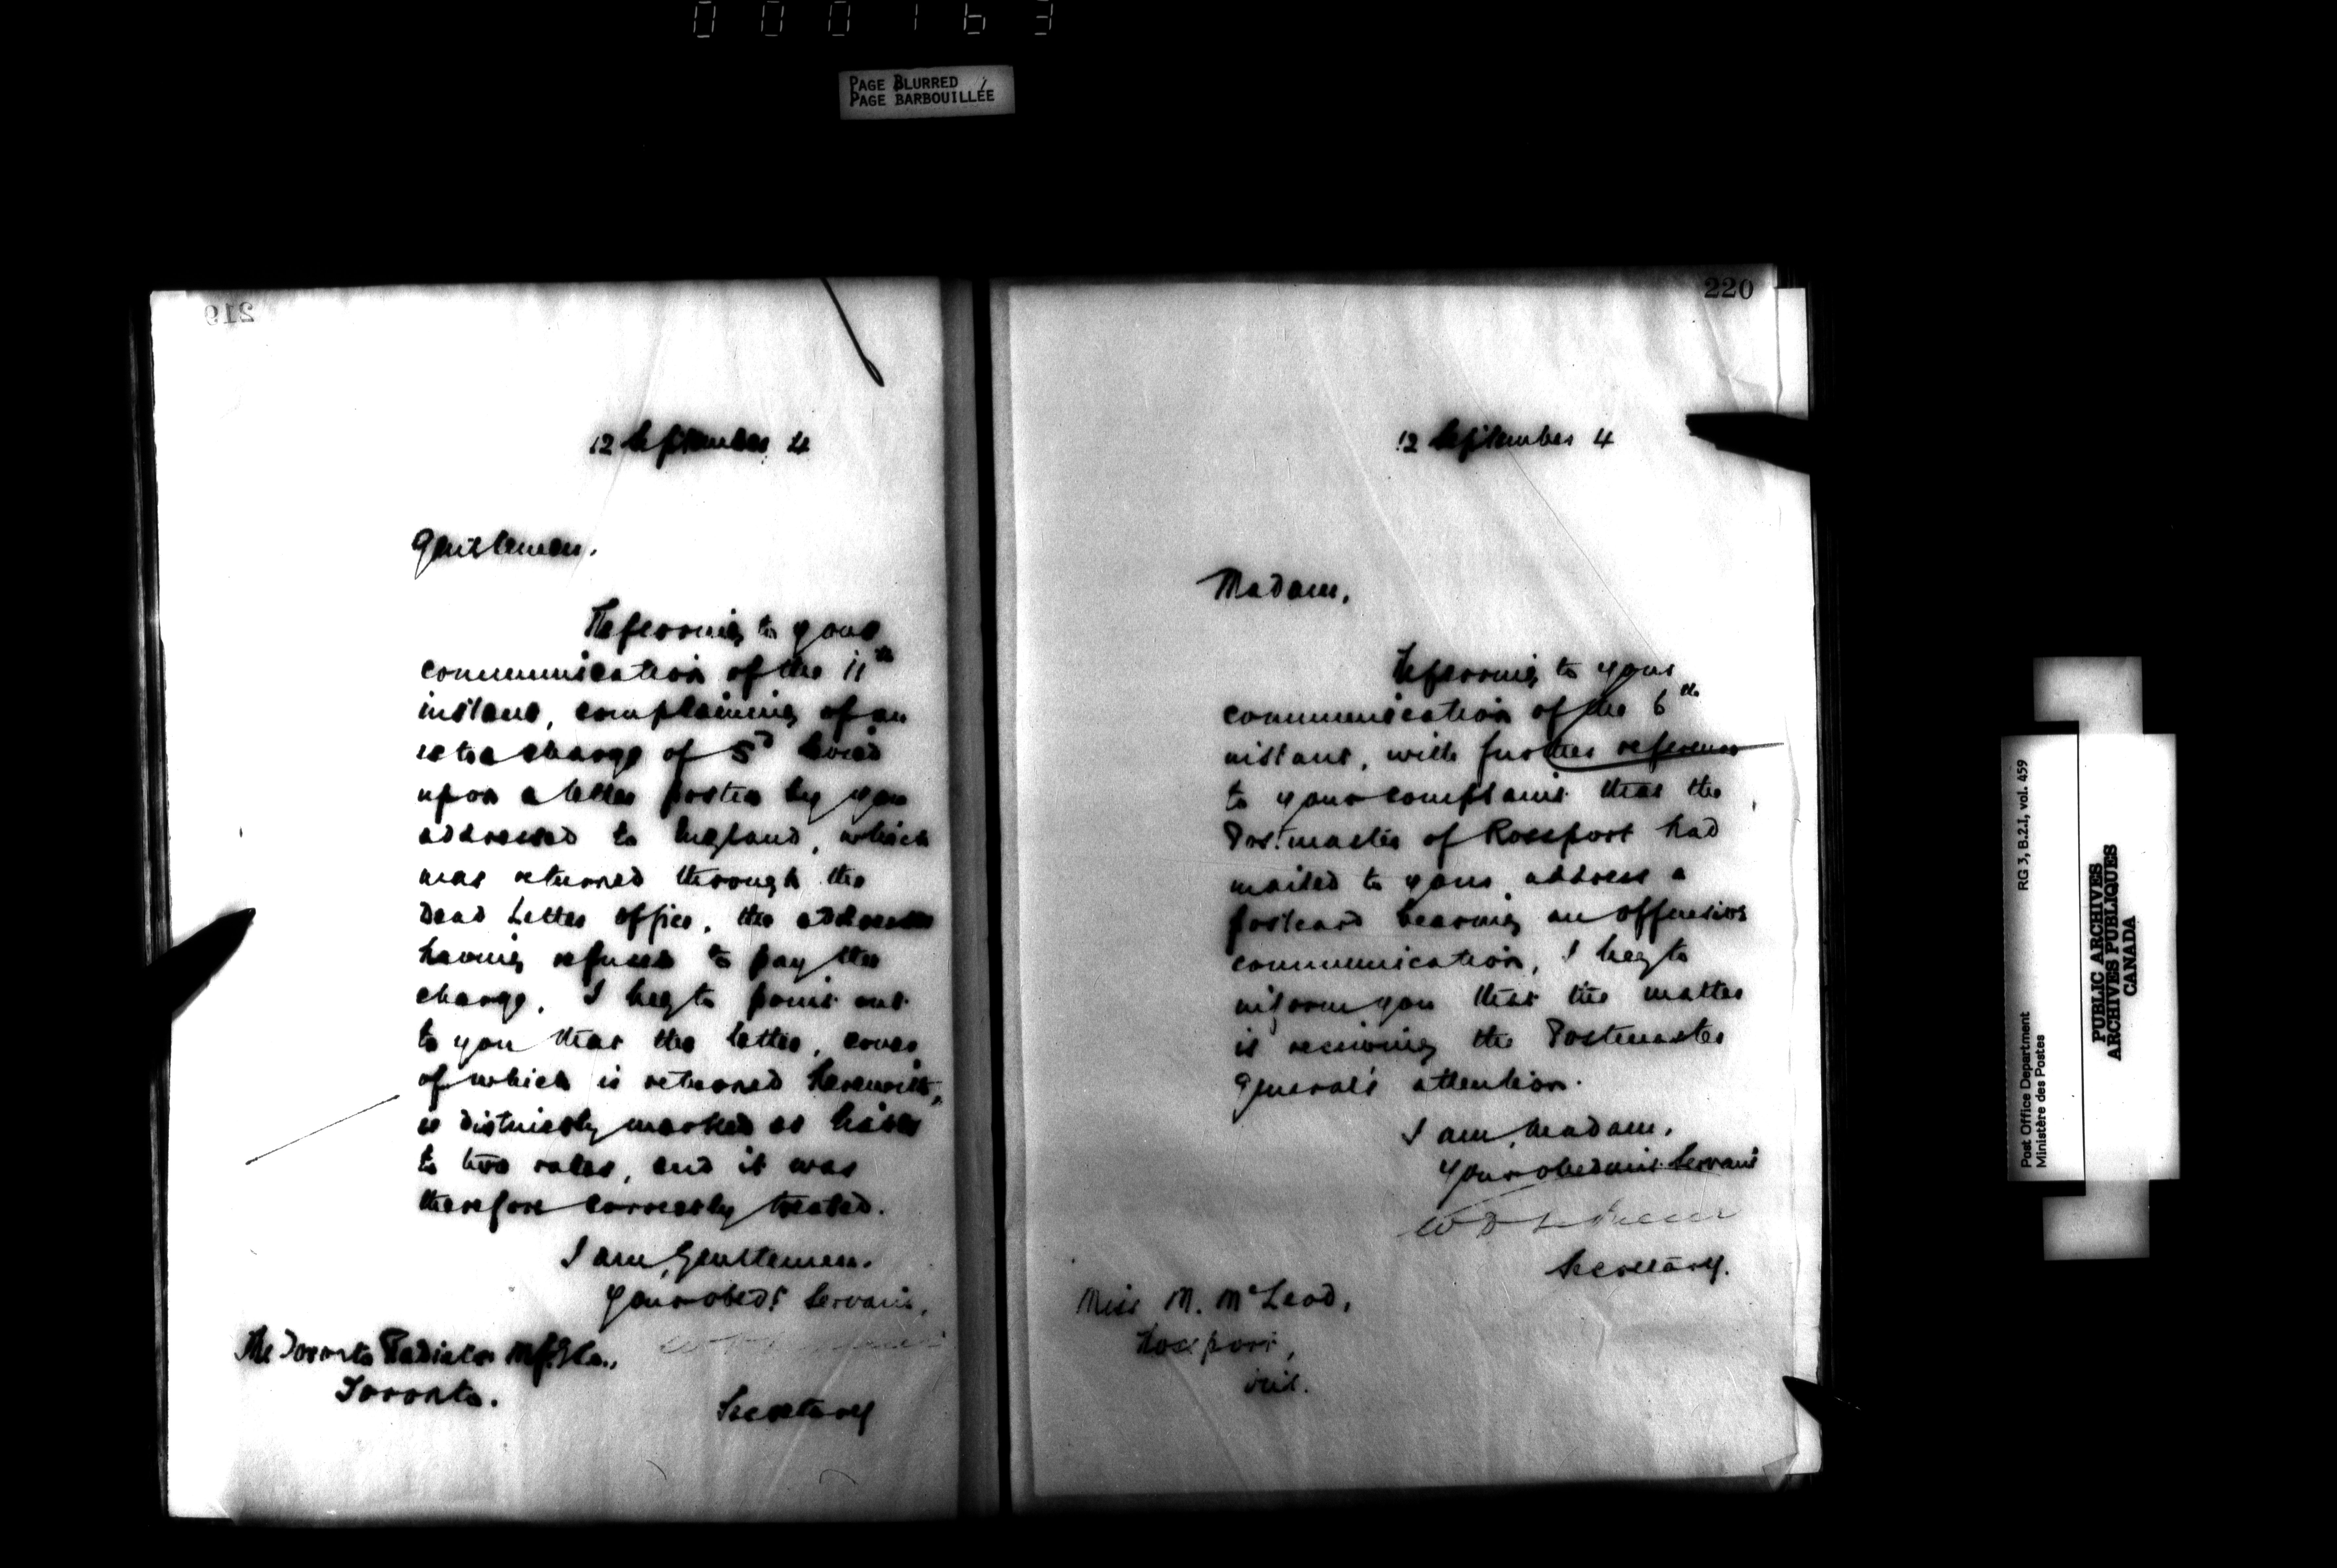 000163
PAGE BLURRED
PAGE BARBOUILLÉE
219
12 September 4
Gentlemen.
Referring to your
communication of the 11th
instant, complaining of an
extra charge of 5d levied
upon a letter posted by you
addressed to England, which
was returned through the
Dead Letter Office, the addressee
having refused to pay the
charge. I beg to point out
to you that the letter, cover
of which is returned herewith,
is distinctly marked as liable
to two rates, and it was
therefore correctly treated.
I am, Gentlemen.
Your obedt Servant,
Secretary
The Toronto Radiator Mfg Co.,
Toronto.
220
12 September 4
Madam,
Referring to your
communication of the 6th
instant, with further reference
to your complaint that the
Postmaster of Rossport had
mailed to your address a
postcard bearing an offensive
communication, I beg to
inform you that the matter
is receiving the Postmaster
General's attention.
I am, Madam,
Your obedient Servant
Secretary.
Miss M. McLeod,
Rossport,
Ont.
Post Office Department
Ministère des Postes
RG 3, B.2.1, vol. 459
PUBLIC ARCHIVES
ARCHIVES PUBLIQUES
CANADA